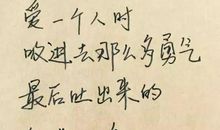 爱一个人时
吸进去那么多勇气
最后吐出来的